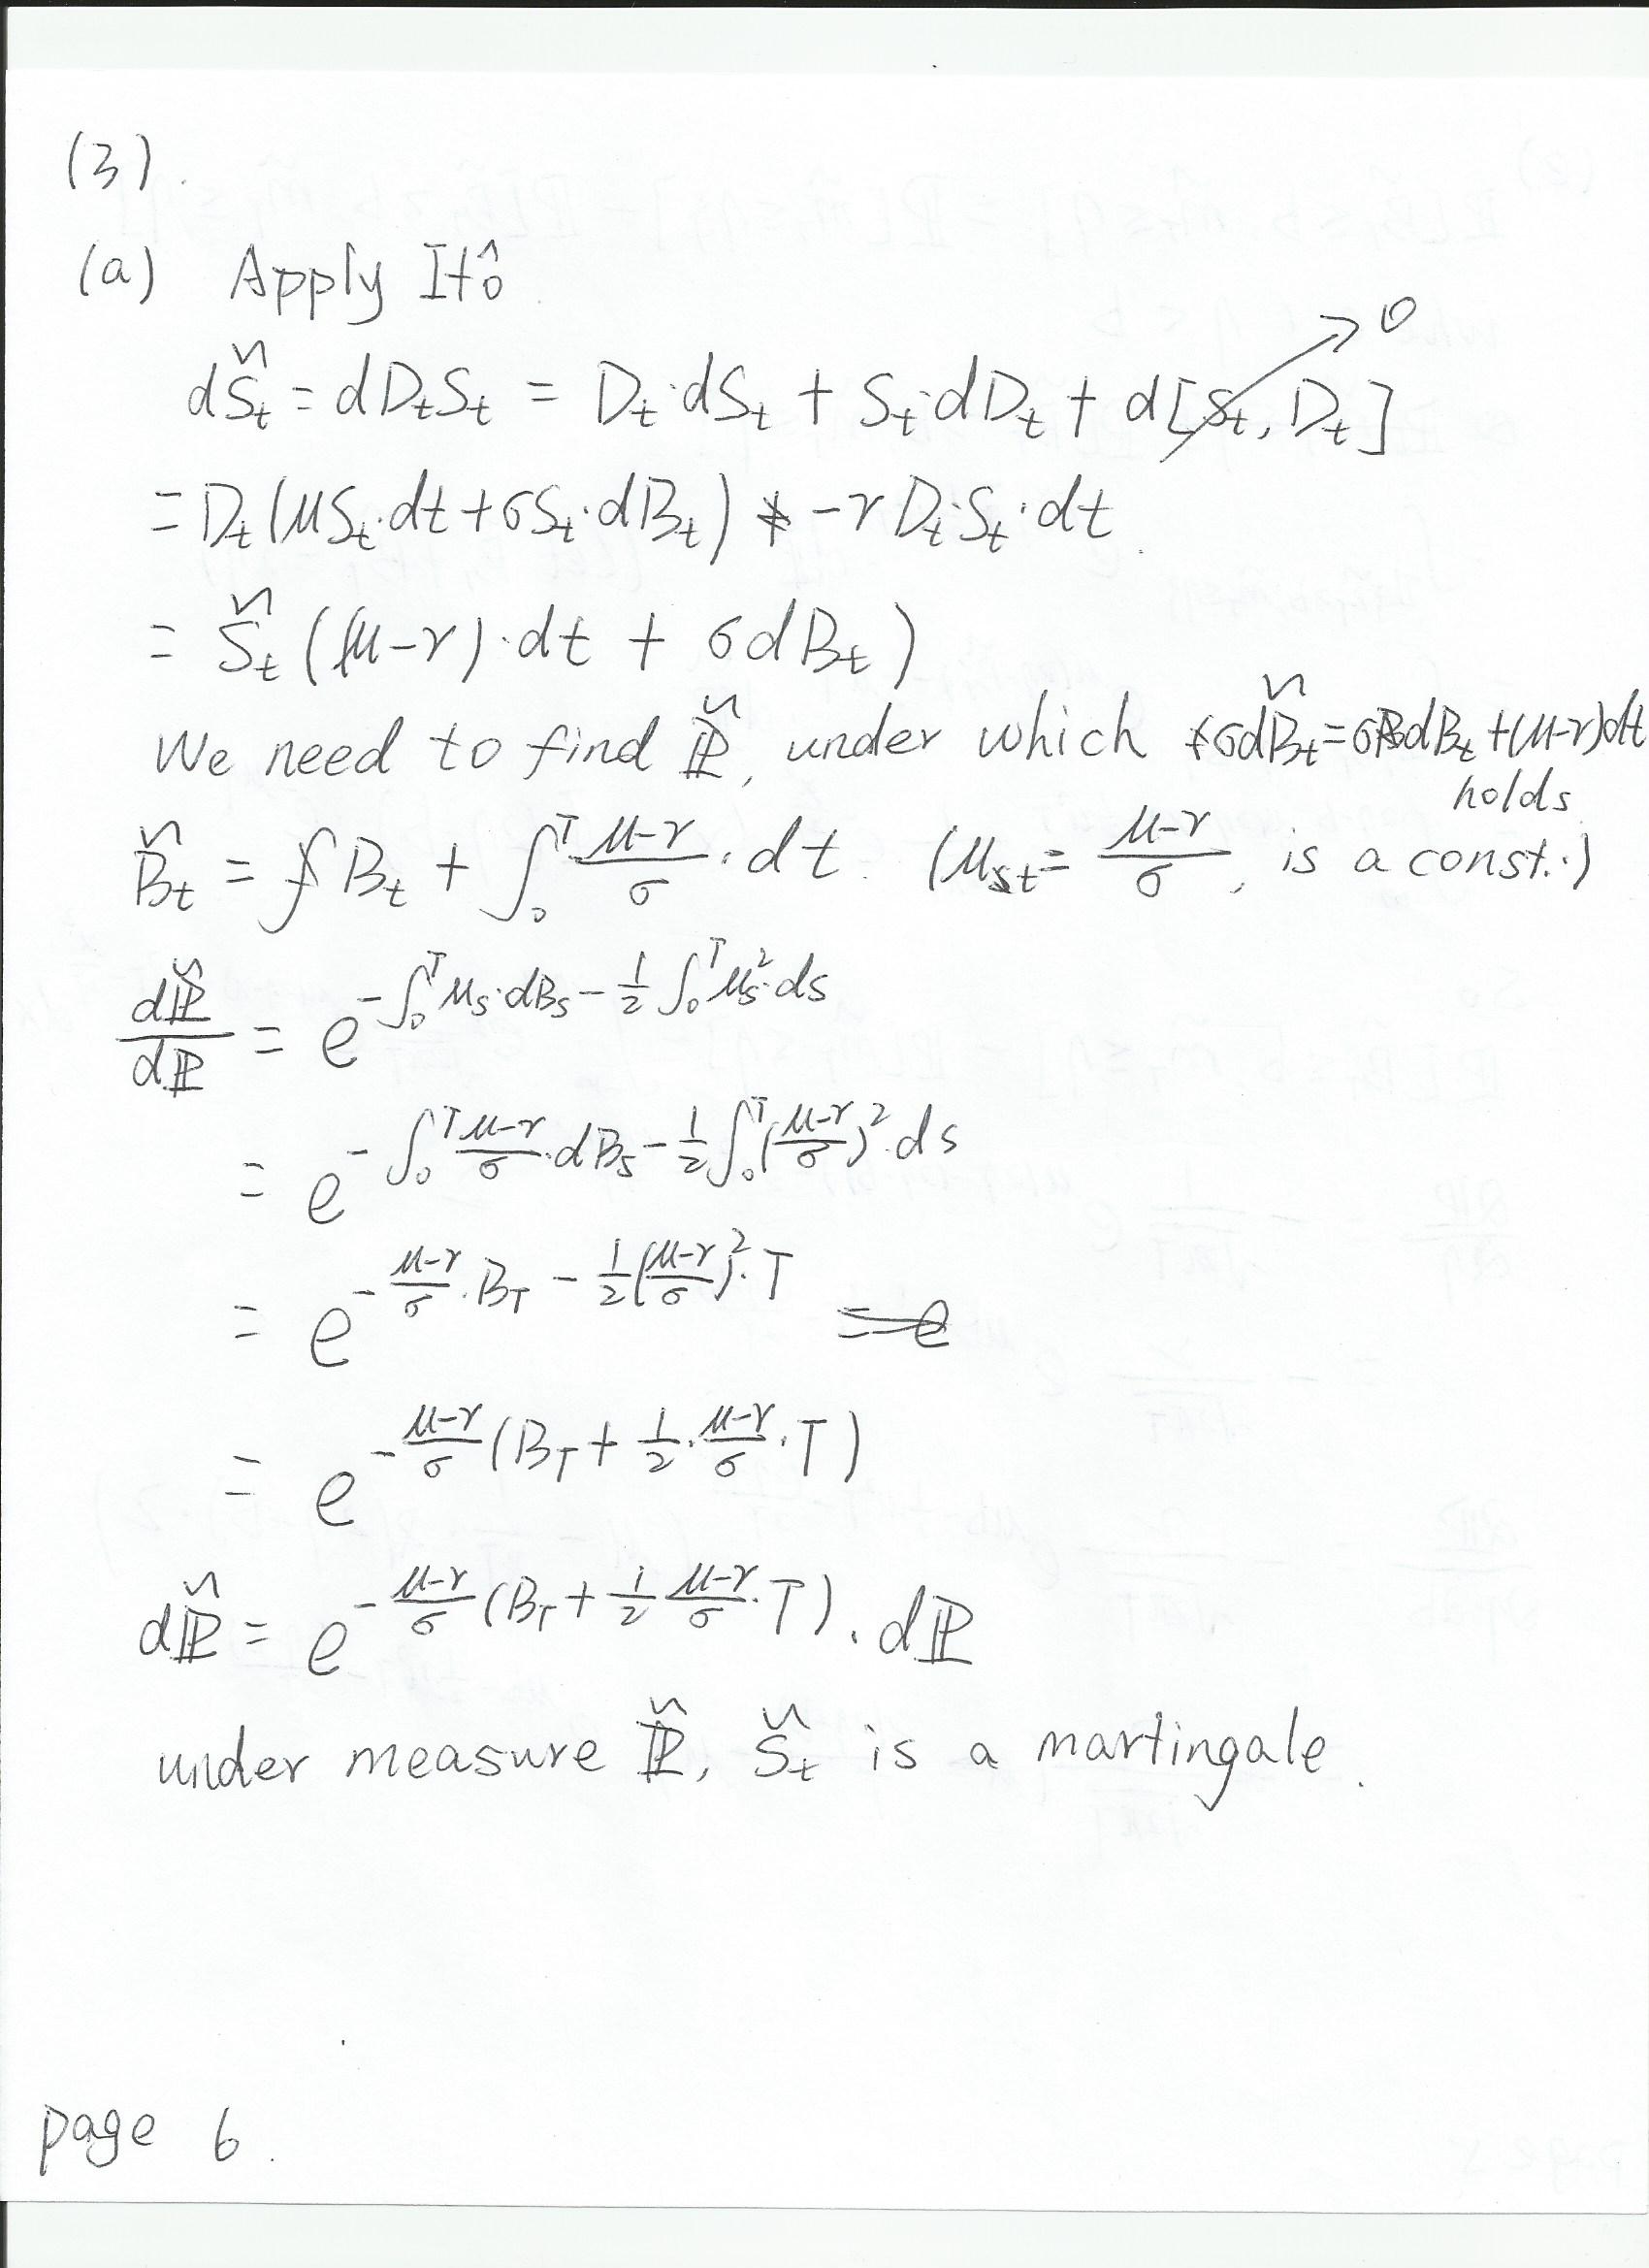 (3).
(a) Apply Itô
dS̃_t = dD_tS_t = D_t·dS_t + S_t·dD_t + d[S_t, D_t] → 0
= D_t(μS_t·dt + σS_t·dB_t) -rD_t·S_t·dt
= S̃_t (μ-r)·dt + σdB_t)
We need to find P̃, under which σdB̃_t = σdB_t + (μ-r)dt
holds
B̃_t = B_t + ∫_0^T (μ-r)/σ · dt. (μ_st = (μ-r)/σ, is a const.)
dP̃/dP = e^{-∫_0^T μ_s·dB_s - 1/2 ∫_0^T μ_s^2·ds}
= e^{-∫_0^T (μ-r)/σ·dB_s - 1/2 ∫_0^T ((μ-r)/σ)^2·ds}
= e^{-(μ-r)/σ·B_T - 1/2((μ-r)/σ)^2·T} = e
= e^{-(μ-r)/σ (B_T + 1/2·(μ-r)/σ·T)}
dP̃ = e^{-(μ-r)/σ (B_T + 1/2 (μ-r)/σ·T)} · dP
under measure P̃, S̃_t is a martingale.
page 6.